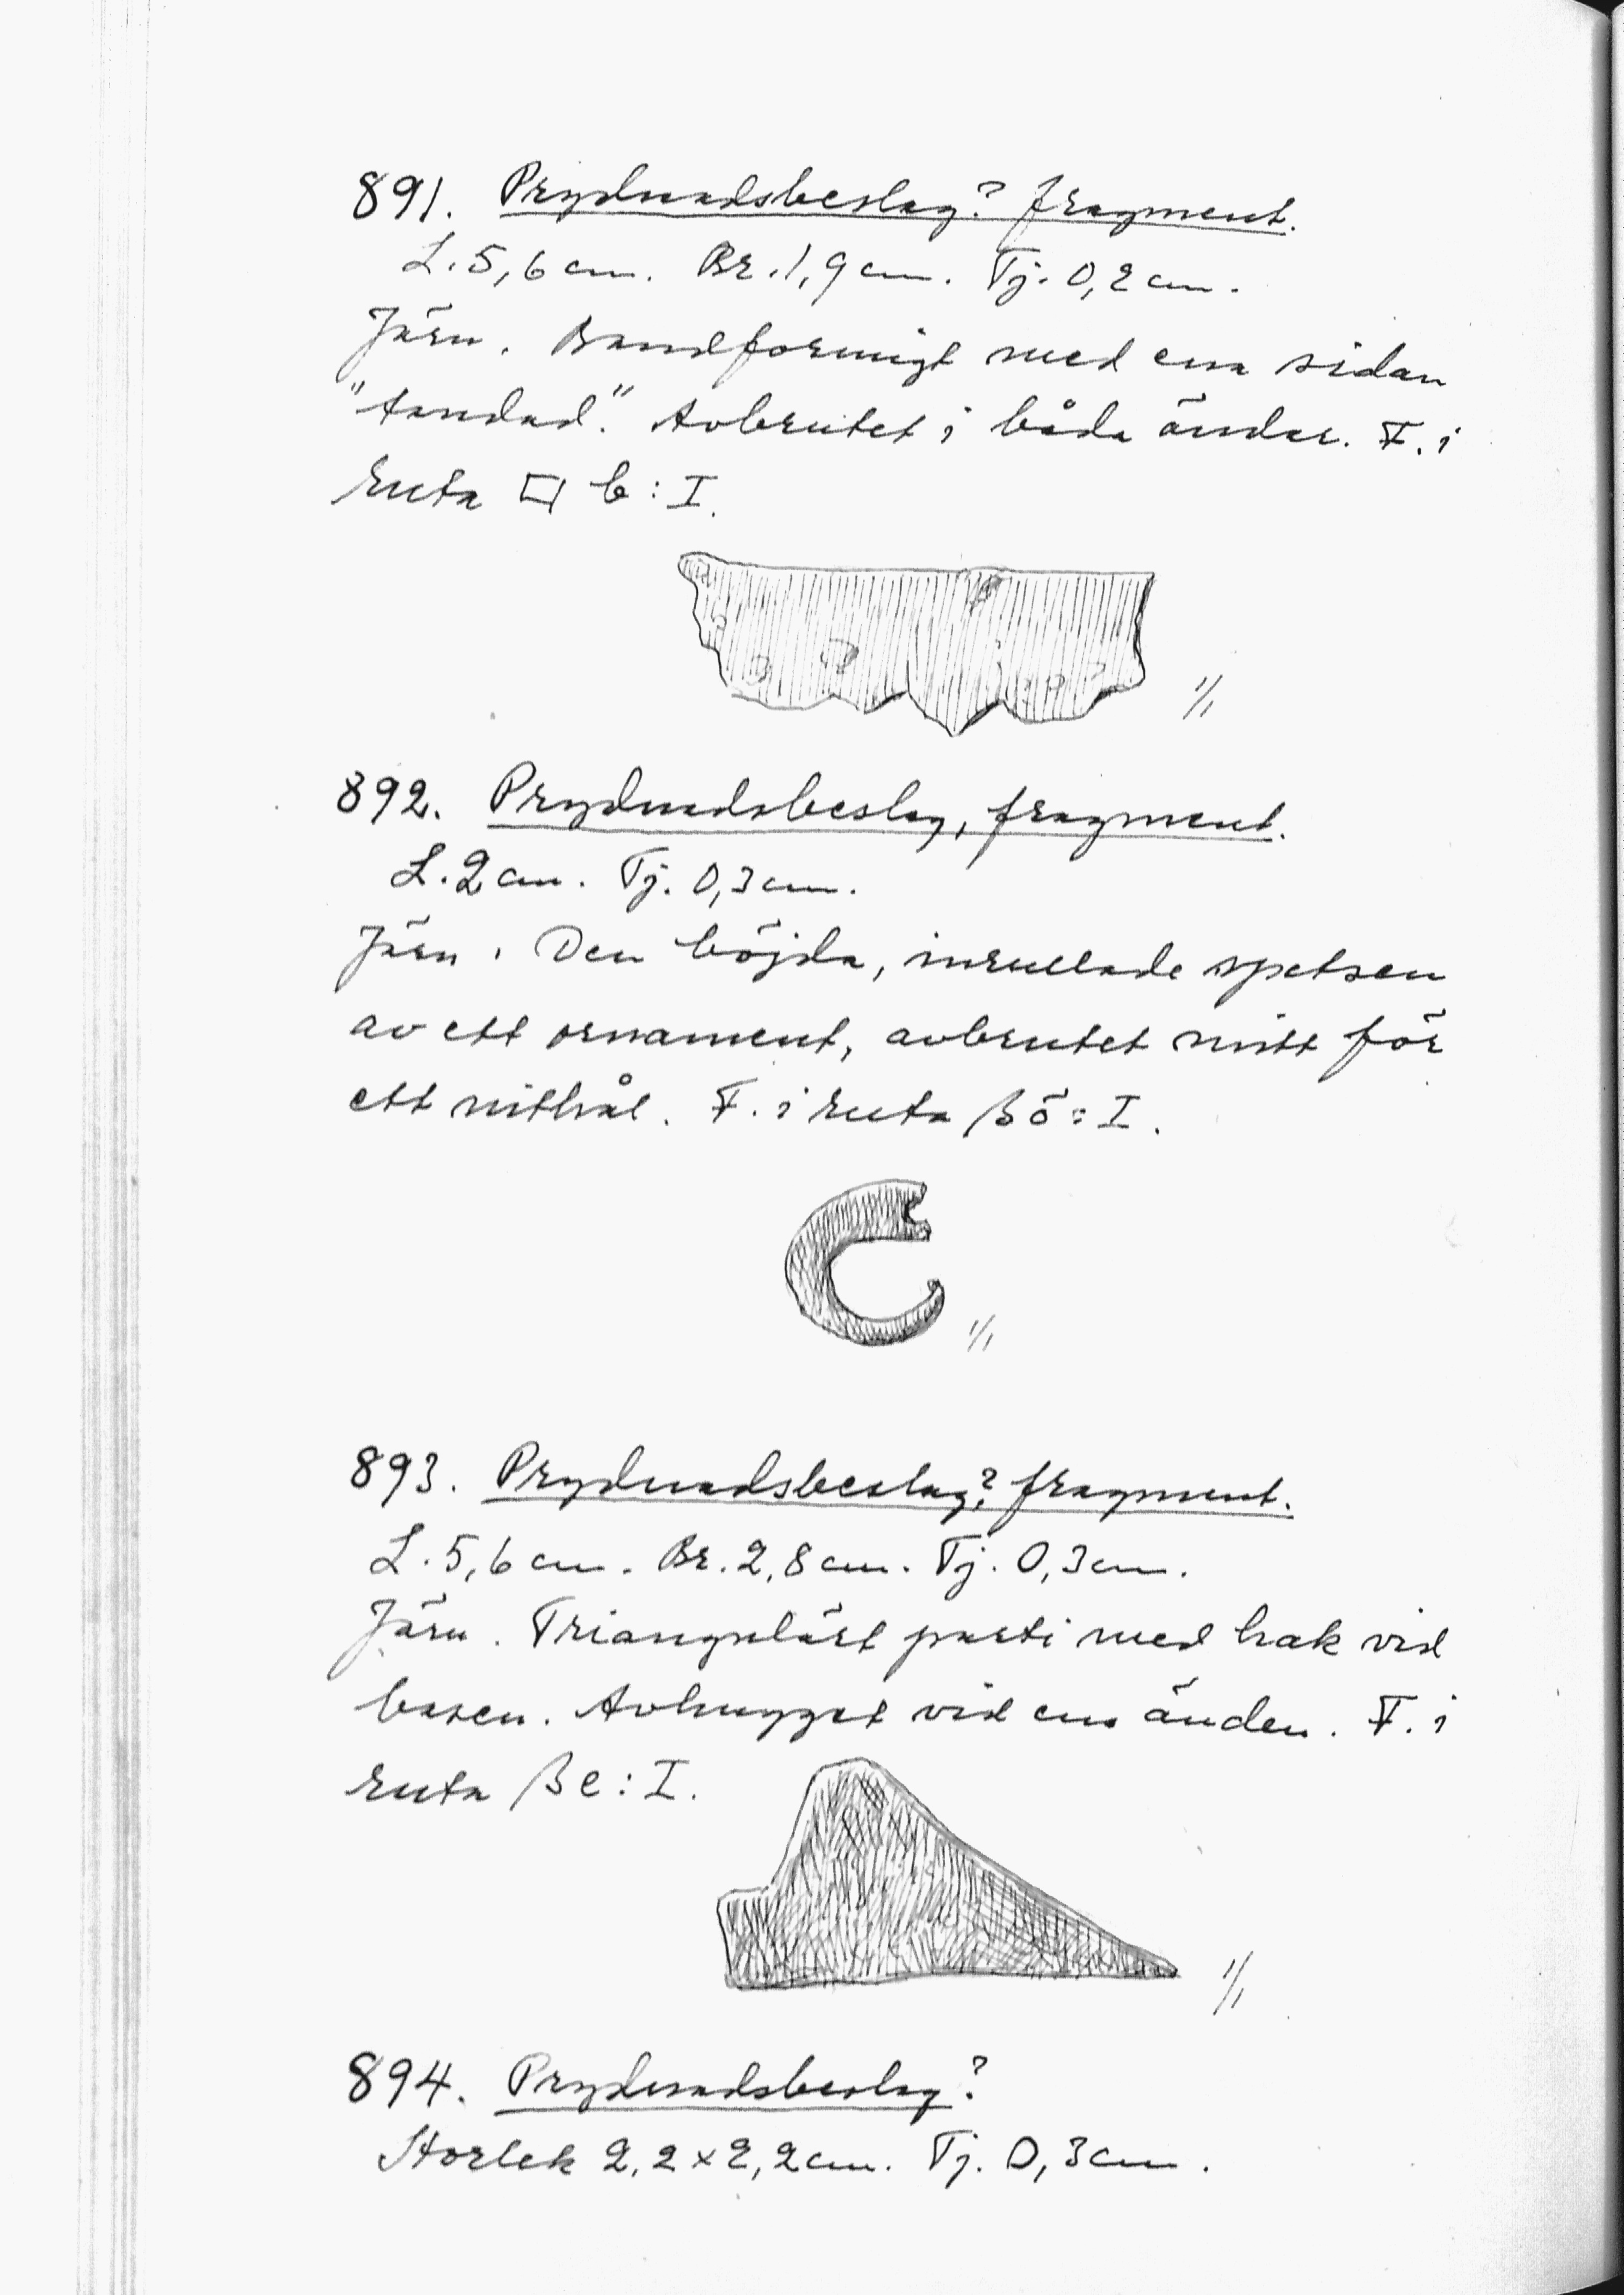 891. Prydnadsbeslag? fragment.
L. 5,6 cm. Br. 1,9 cm. Tj. 0,2 cm.
Järn. Bandformigt med ena sidan
"tandad". Avbrutet i båda ändar. F. i
ruta □ b : I.
1/1
892. Prydnadsbeslag, fragment.
L. 2 cm. Tj. 0,3 cm.
Järn. Den böjda, inrullade spetsen
av ett ornament, avbrutet mitt för
ett nithål. F. i ruta β ö : I.
1/1
893. Prydnadsbeslag? fragment.
L. 5,6 cm. Br. 2,8 cm. Tj. 0,3 cm.
Järn. Triangulärt parti med hak vid
basen. Avhugget vid ena änden. F. i
ruta β e : I.
1/1
894. Prydnadsbeslag?
Storlek 2,2 x 2,2 cm. Tj. 0,3 cm.